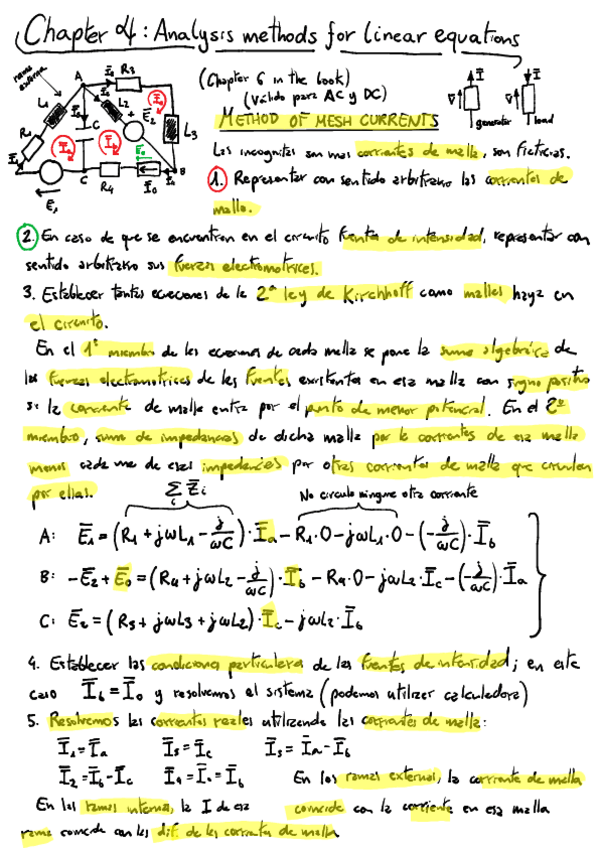 Chapter 4: Analysis methods for linear equations
(Chapter 6 in the book)
(Válido para AC y DC)
METHOD OF MESH CURRENTS
rama externa
A
I₅
R₃
L₁
C
L₂
E₂
L₃
R₁
I₁
E₀
E₁
C
R₄
I₀
B
I
generator
I
load
Las incognitas son unas corrientes de malla, son ficticias.
1. Representar con sentido arbitrario las corrientes de
malla.
2. En caso de que se encuentren en el circuito fuentes de intensidad, representar con
sentido arbitrario sus fuerzas electromotrices.
3. Establecer tantas ecuaciones de la 2ª ley de Kirchhoff como mallas haya en
el circuito.
En el 1º miembro de las ecuaciones de cada malla se pone la suma algebraica de
las fuerzas electromotrices de las fuentes existentes en esa malla con signo positivo
si la corriente de malla entra por el punto de menor potencial. En el 2º
miembro, suma de impedancias de dicha malla por la corrientes de esa malla
menos cada una de esas impedancias por otras corrientes de malla que circulan
por ellas.
∑ᵢ Z̄ᵢ
No circula ninguna otra corriente
A: Ē₁=(R₁+jωL₁-j/ωC)·Īa-R₁·0-jωL₁·0-(-j/ωC)·Īb
B: -Ē₂+Ē₀=(R₄+jωL₂-j/ωC)·Īb-R₄·0-jωL₂·Īc-(-j/ωC)·Īa
C: Ē₂=(R₃+jωL₃+jωL₂)·Īc-jωL₂·Īb
4. Establecer las condiciones particulares de las fuentes de intensidad; en este
caso Īb=Ī₀ y resolvemos el sistema (podemos utilizar calculadora)
5. Resolvemos las corrientes reales utilizando las corrientes de malla:
Ī₁=Īa Ī₅=Īc Ī₃=Īa-Īb
Ī₂=Īb-Īc Ī₄=Ī₀=Īb En las ramas externas, la corriente de malla
En las ramas internas, la I de esa coincide con la corriente en esa malla
rama coincide con las dif. de las corrientes de malla